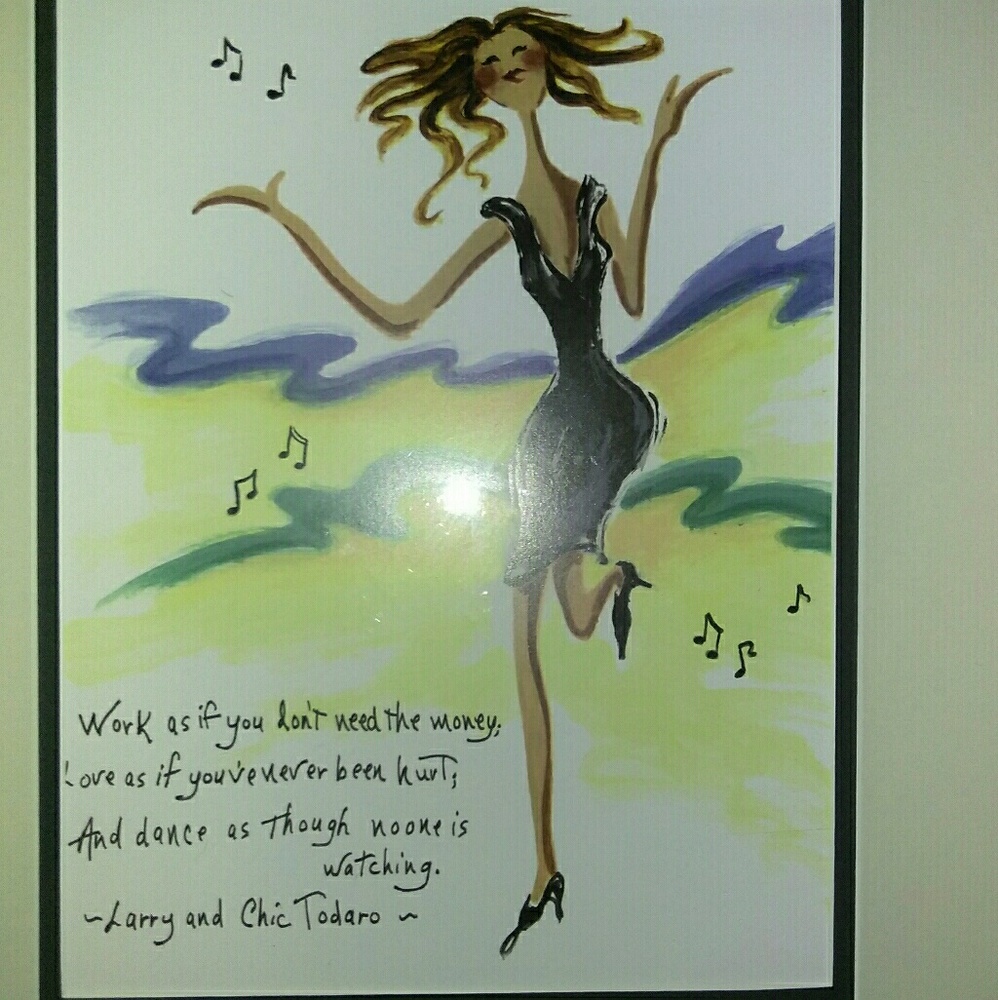 Work as if you don't need the money;
Love as if you've never been hurt;
And dance as though noone is
watching.
~Larry and Chic Todaro ~